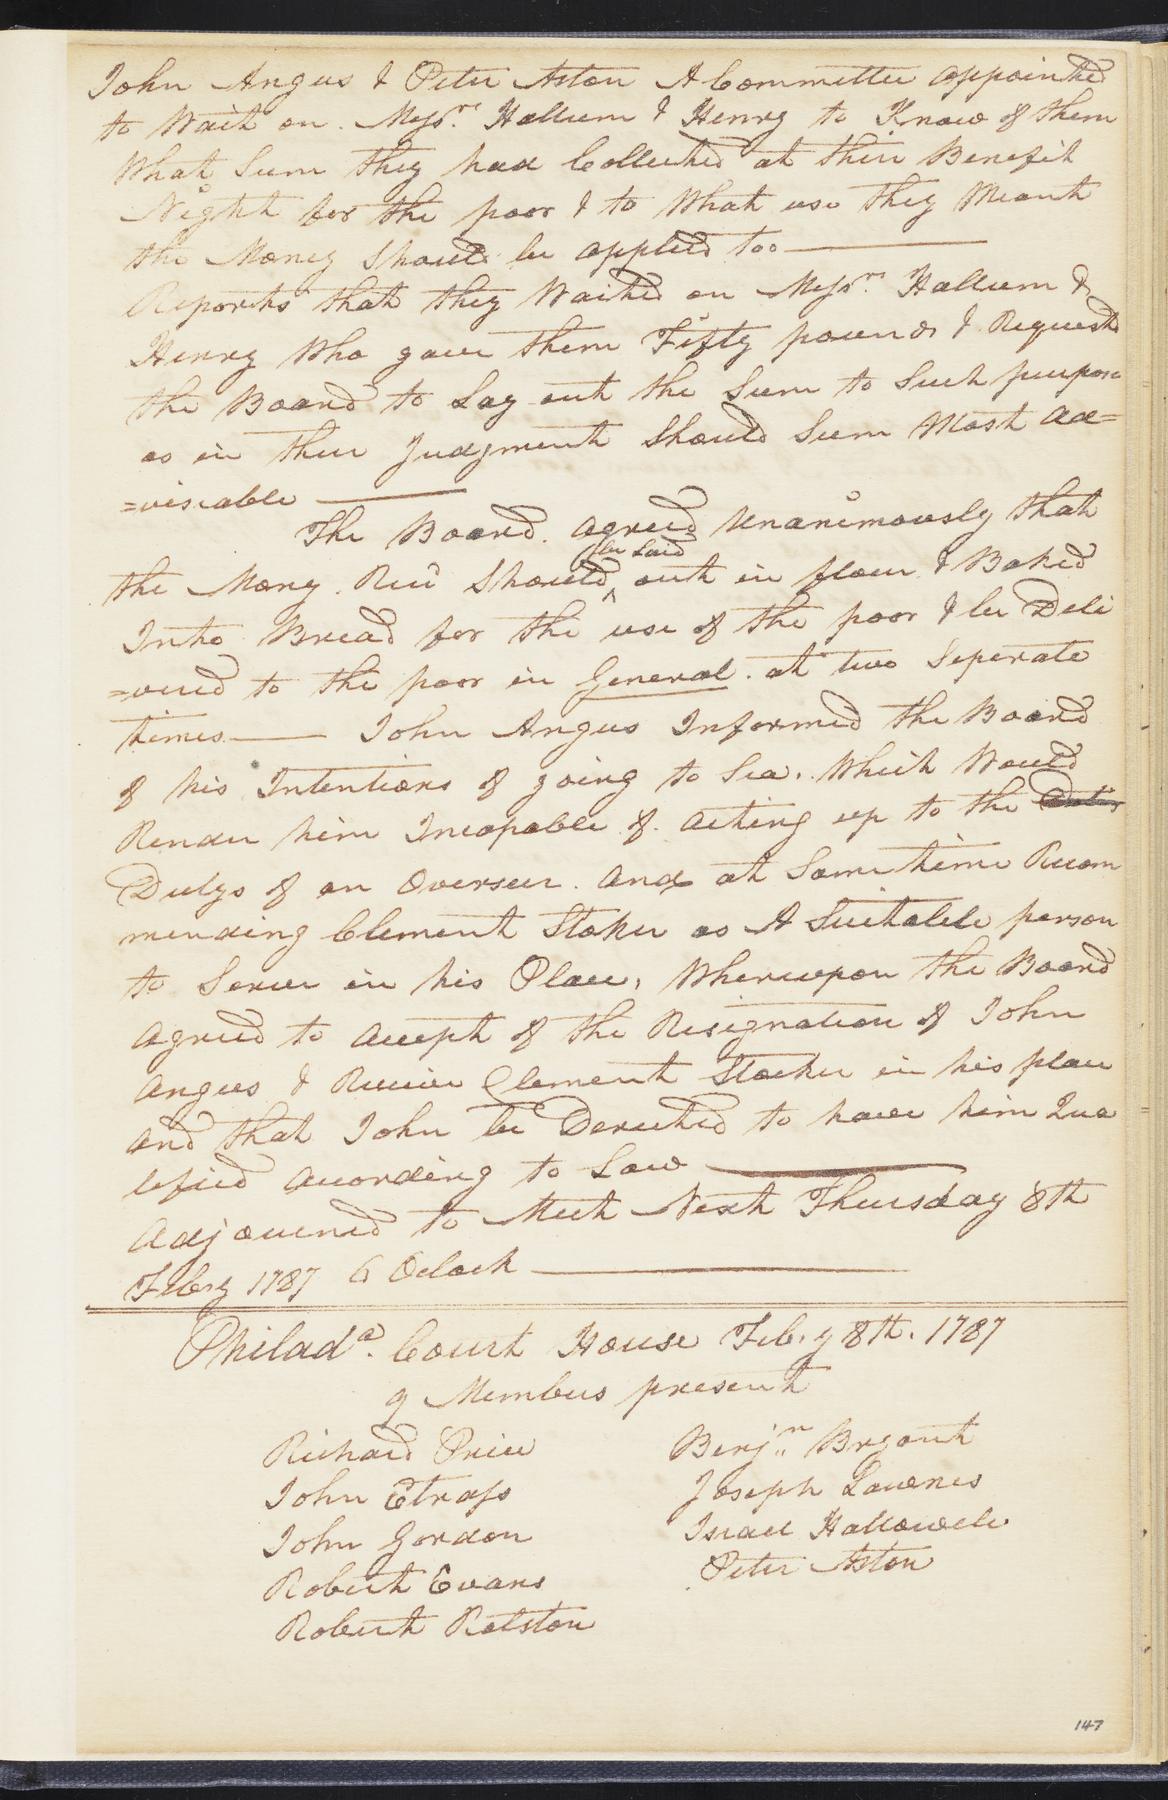 John Angus & Peter Aston A Committee appointed
to Wait on Messrs. Hallum & Henry to Know of them
What Sum they had Collected at their Benefit
Night for the poor & to What use they Meant
the Money Should be applied too
Reports that they Waited on Messrs. Hallum &
Henry Who gave them Fifty pounds & Requests
the Board to Lay out the Sum to Such purpose
as in their Judgment Should Seem Most Ad=
=viseable
The Board agreed Unanimously that
be Laid
the Mony Recd Should ^ out in flour & Baked
Into Bread for the use of the poor & be Deli
=vered to the poor in General at two Seperate
times John Angus Informed the Board
of his Intentions of going to Sea. Which Would
Render him Incapable of acting up to the
Dutys of an Overseer. And at Same time Recom
mending Clement Stoker as A Suitable person
to Serve in his Place, Whereupon the Board
agreed to accept of the Resignation of John
Angus & Receive Clement Stocker in his place
and that John be Derected to have him Qua
lefied according to Law
Adjourned to Meet Next Thursday 8th
Febry 1787 6 Oclock
Philada. Court House Feb.y 8th. 1787
9 Members present
Richard Price
John Strass
John Gordon
Robert Evans
Robert Ralston
Benjn. Bryant
Joseph Lownes
Israel Hallowell
Peter Aston
147